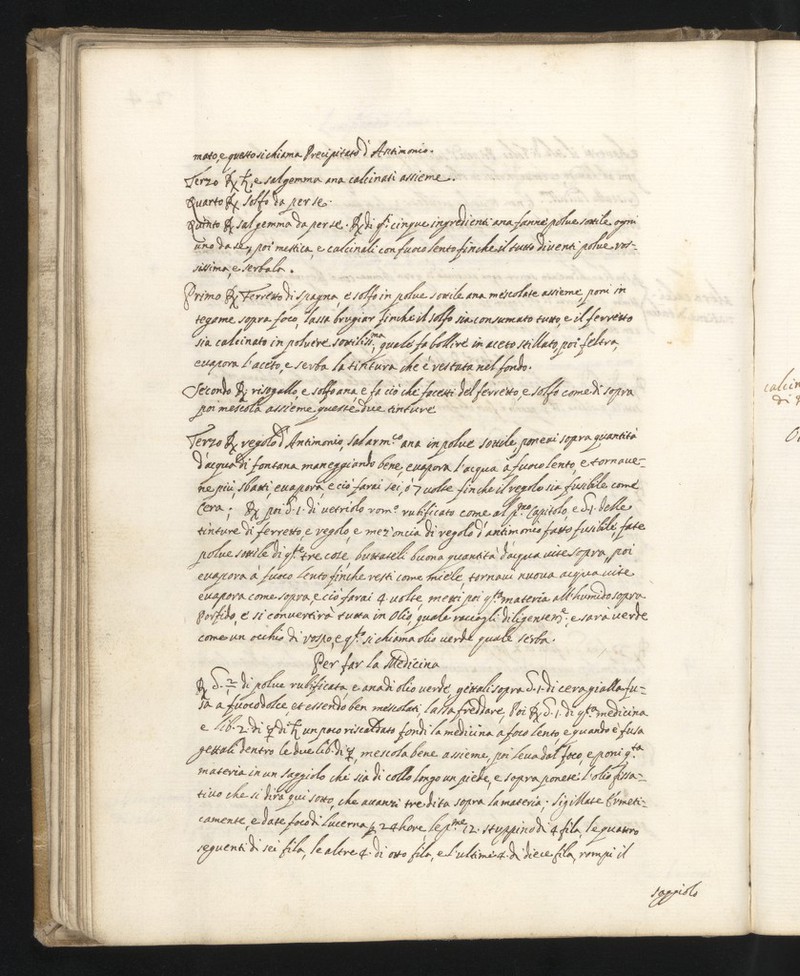 mato, e questo si chiama Precipitato d'Antimonio.
Terzo ℞ ♄, e sal gemma ana calcinati assieme.
Quarto ℞ solfo da per se.
Quinto ℞ sal gemma da per se. ℞ di q.ti cinque ingredienti ana fanne polve sottile ogni
uno da se, poi mestica, e calcinali con fuoco lento finche il tutto diventi polve ros=
sissima, e serbala.
Primo ℞ Ferretto di spagna, e solfo in polve sottile ana mescolate assieme, poni in
tegame sopra foco, lassa brugiar finche il solfo sia consumato tutto, e il ferretto
sia calcinato in polvere sottiliss.ma, quale fa bollire in aceto stillato, poi feltra,
evapora l'aceto, e serba la tintura che è restata nel fondo.
Secondo ℞ risogallo, e solfo ana, e fa ciò che facesti del ferretto, e solfo come di sopra
poi mescola assieme queste due tinture
Terzo ℞ regolo d'Antimonio, sal arm.co ana in polve sottile, ponevi sopra quantità
d'acqua di fontana maneggiando bene, evapora l'acqua a fuoco lento, e tornave=
ne più, sbatti evapora e ciò farai sei, ò 7 volte finche il regolo sia fusibile come
cera; ℞ poi d. 1. di vetriolo rom.o rubificato come al p.mo Capitolo, e d. 1. delle
tinture di ferretto, e regolo e mez'oncia di regolo d'antimonio fatto fusibile, fate
polve sottile di q.te tre cose buttateli buona quantità d'acqua vite sopra, poi
evapora à fuoco lento finche resti come miele, tornavi nuova acqua vite
evapora come sopra, e ciò farai 4 volte, metti poi q.ta materia all'humido sopra
Porfido, e si convertirà tutta in Olio, quale raccogli diligentem.e e sarà verde
come un occhio di rospo, e q.to si chiama olio verde quale serba.
Per far la Medicina
℞ d. 2 di polve rubificata, e ana di olio verde, gettali sopra d. 1. di cera gialla fu=
sa a fuoco dolce et essendo ben mescolati, lassa freddare, Poi ℞ d. 1. di q.ta medicina
e lib. 2. di ☿ di ♄ un poco riscaldato, fondi la medicina a foco lento e quando è fusa
gettali dentro le due lib. di ☿, mescola bene assieme, poi leva dal foco, e poni q.ta
materia in un saggiolo che sia di collo longo un piede, e sopra poneti l'olio fissa=
tivo che si dirà qui sotto, che avanzi tre dita sopra la materia; sigillate Ermeti=
camente, e date foco di lucerna p 24 hore, le p.me 12. stuppino di 4 fila, le quattro
seguenti di sei fila, le altre 4. di otto fila, e l'ultime 4. di diece fila, rompi il
saggiolo
calcin
di